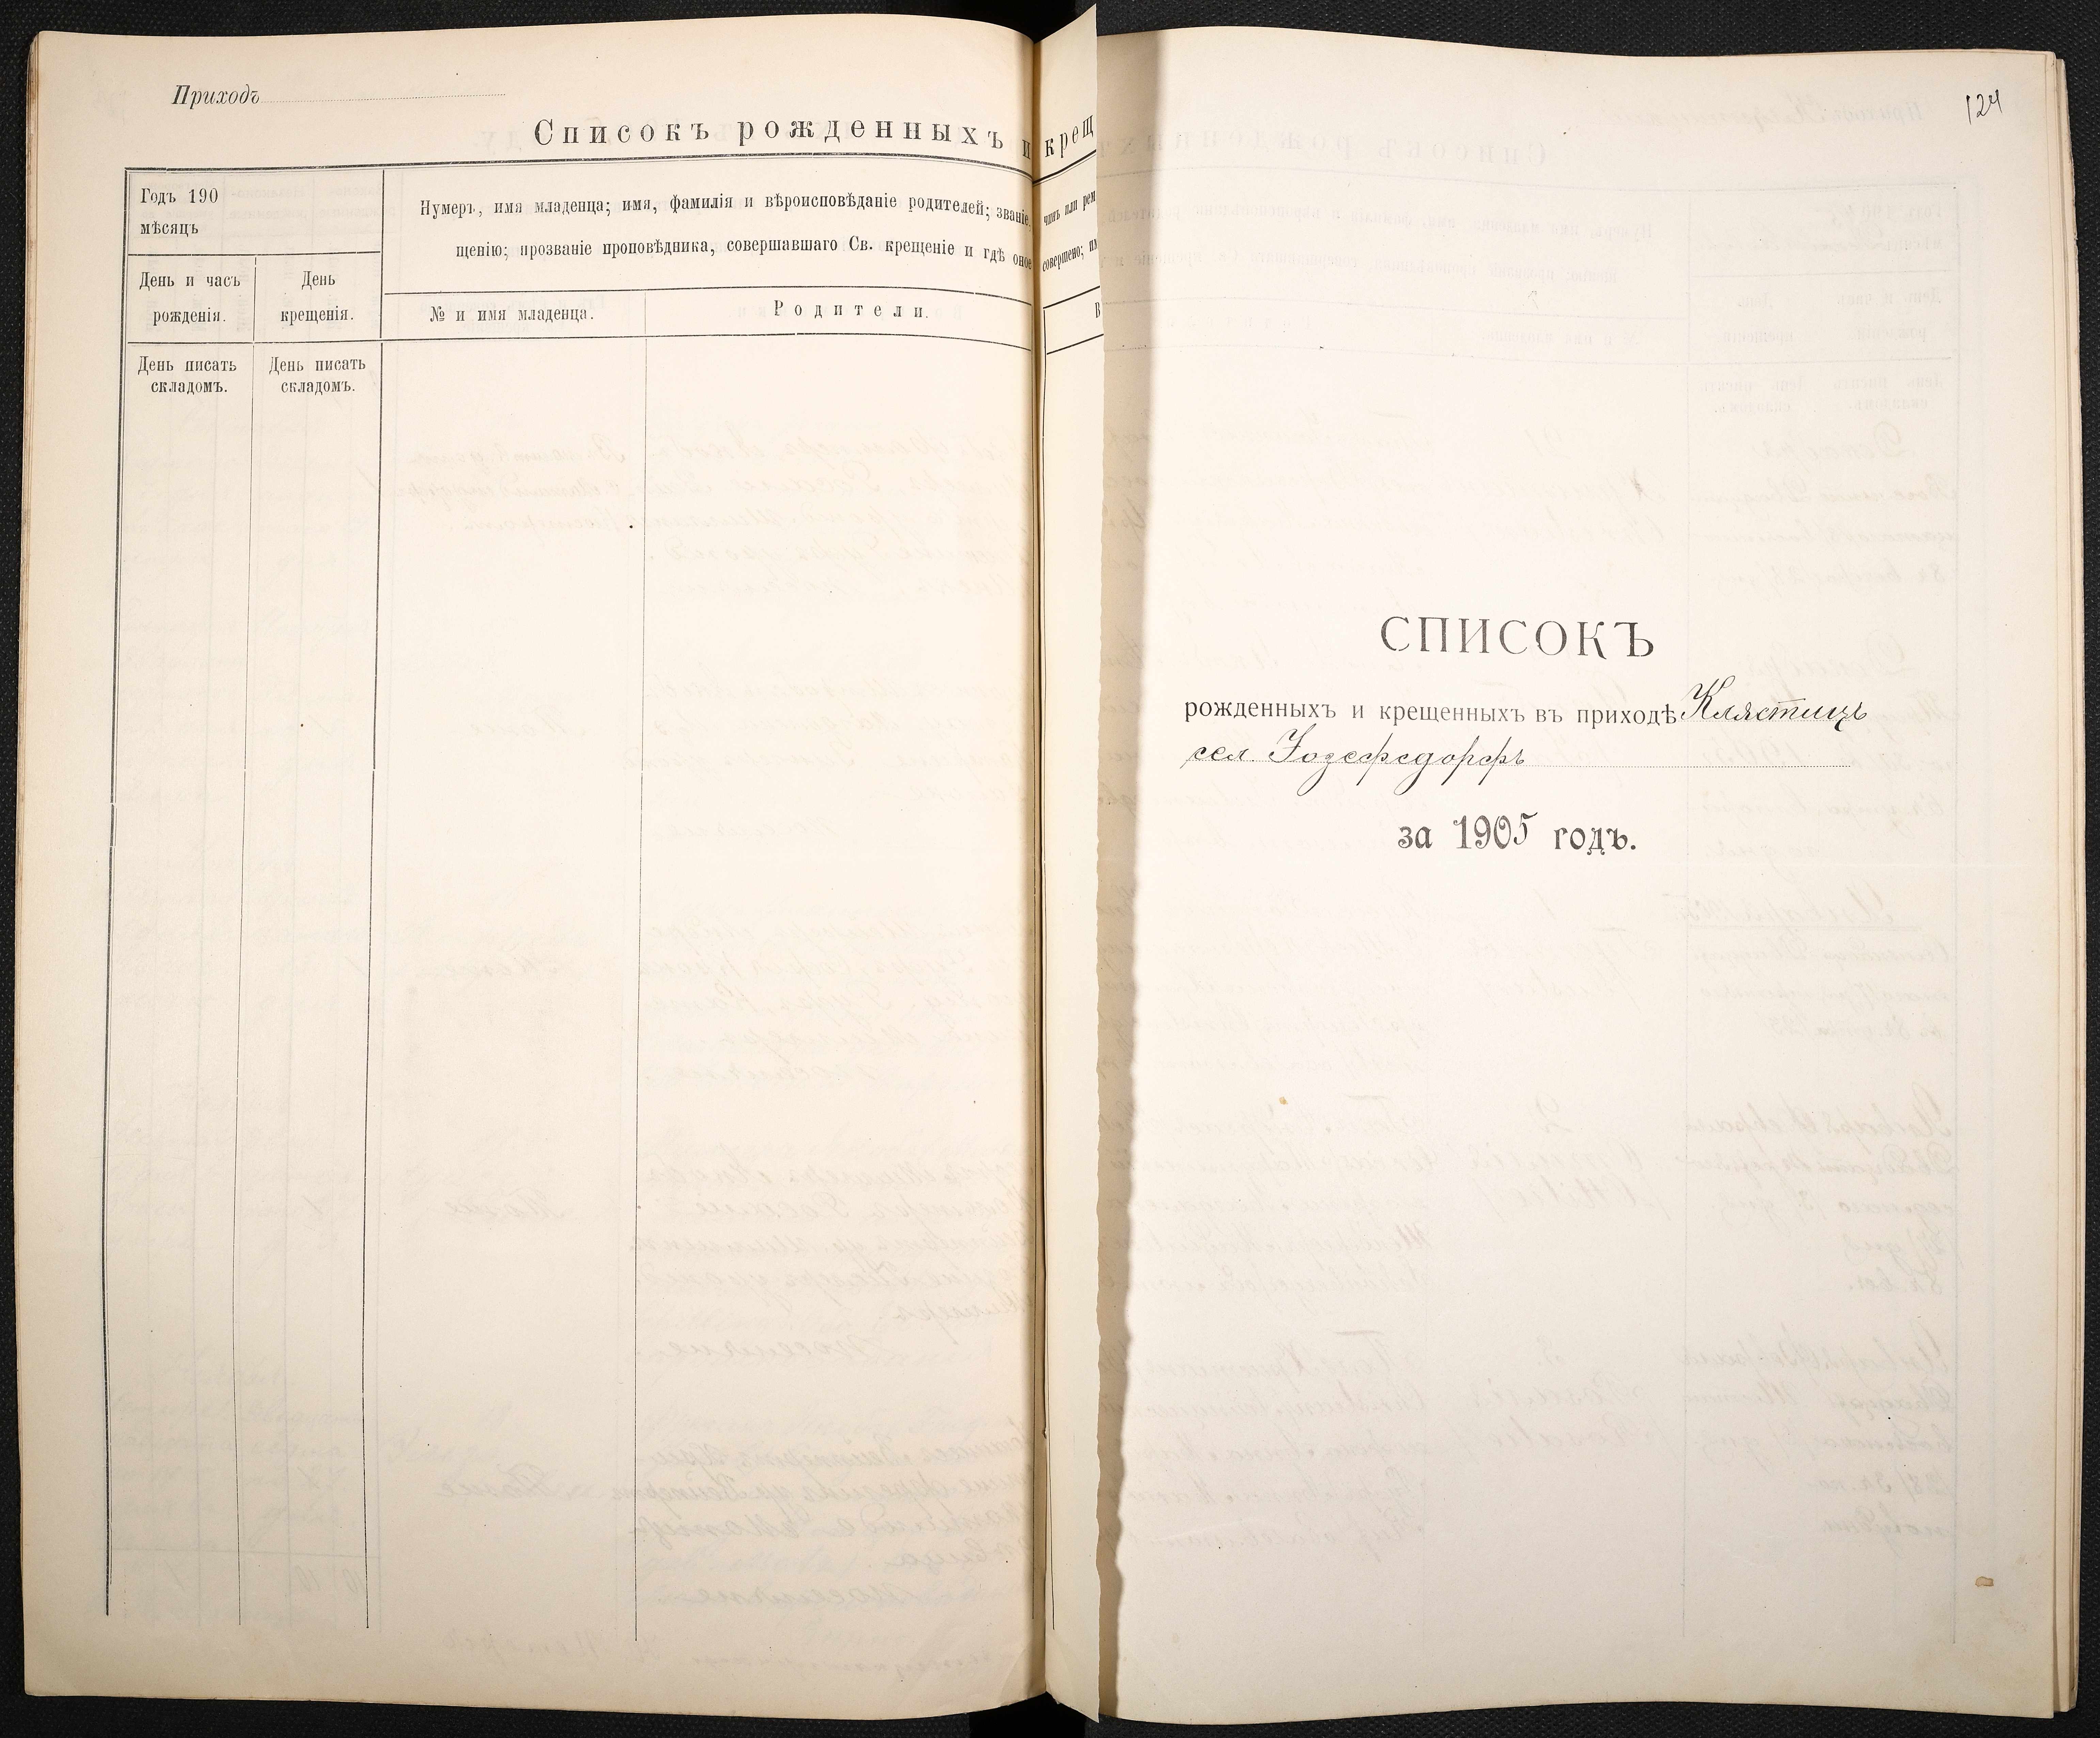 Приходъ
Списокъ рожденныхъ и крещ
Годъ 190
мѣсяцъ
Нумеръ, имя младенца; имя, фамилія и вѣроисповѣданіе родителей; званіе, чинъ или рем
щенію; прозваніе проповѣдника, совершавшаго Св. крещеніе и гдѣ оное совершено; им
День и часъ
рожденія.
День
крещенія.
№ и имя младенца.
Родители.
В
День писать
складомъ.
День писать
складомъ.
124
СПИСОКЪ
рожденныхъ и крещенныхъ въ приходѣ Клястицъ
сел. Іозефсдорфъ
за 1905 годъ.